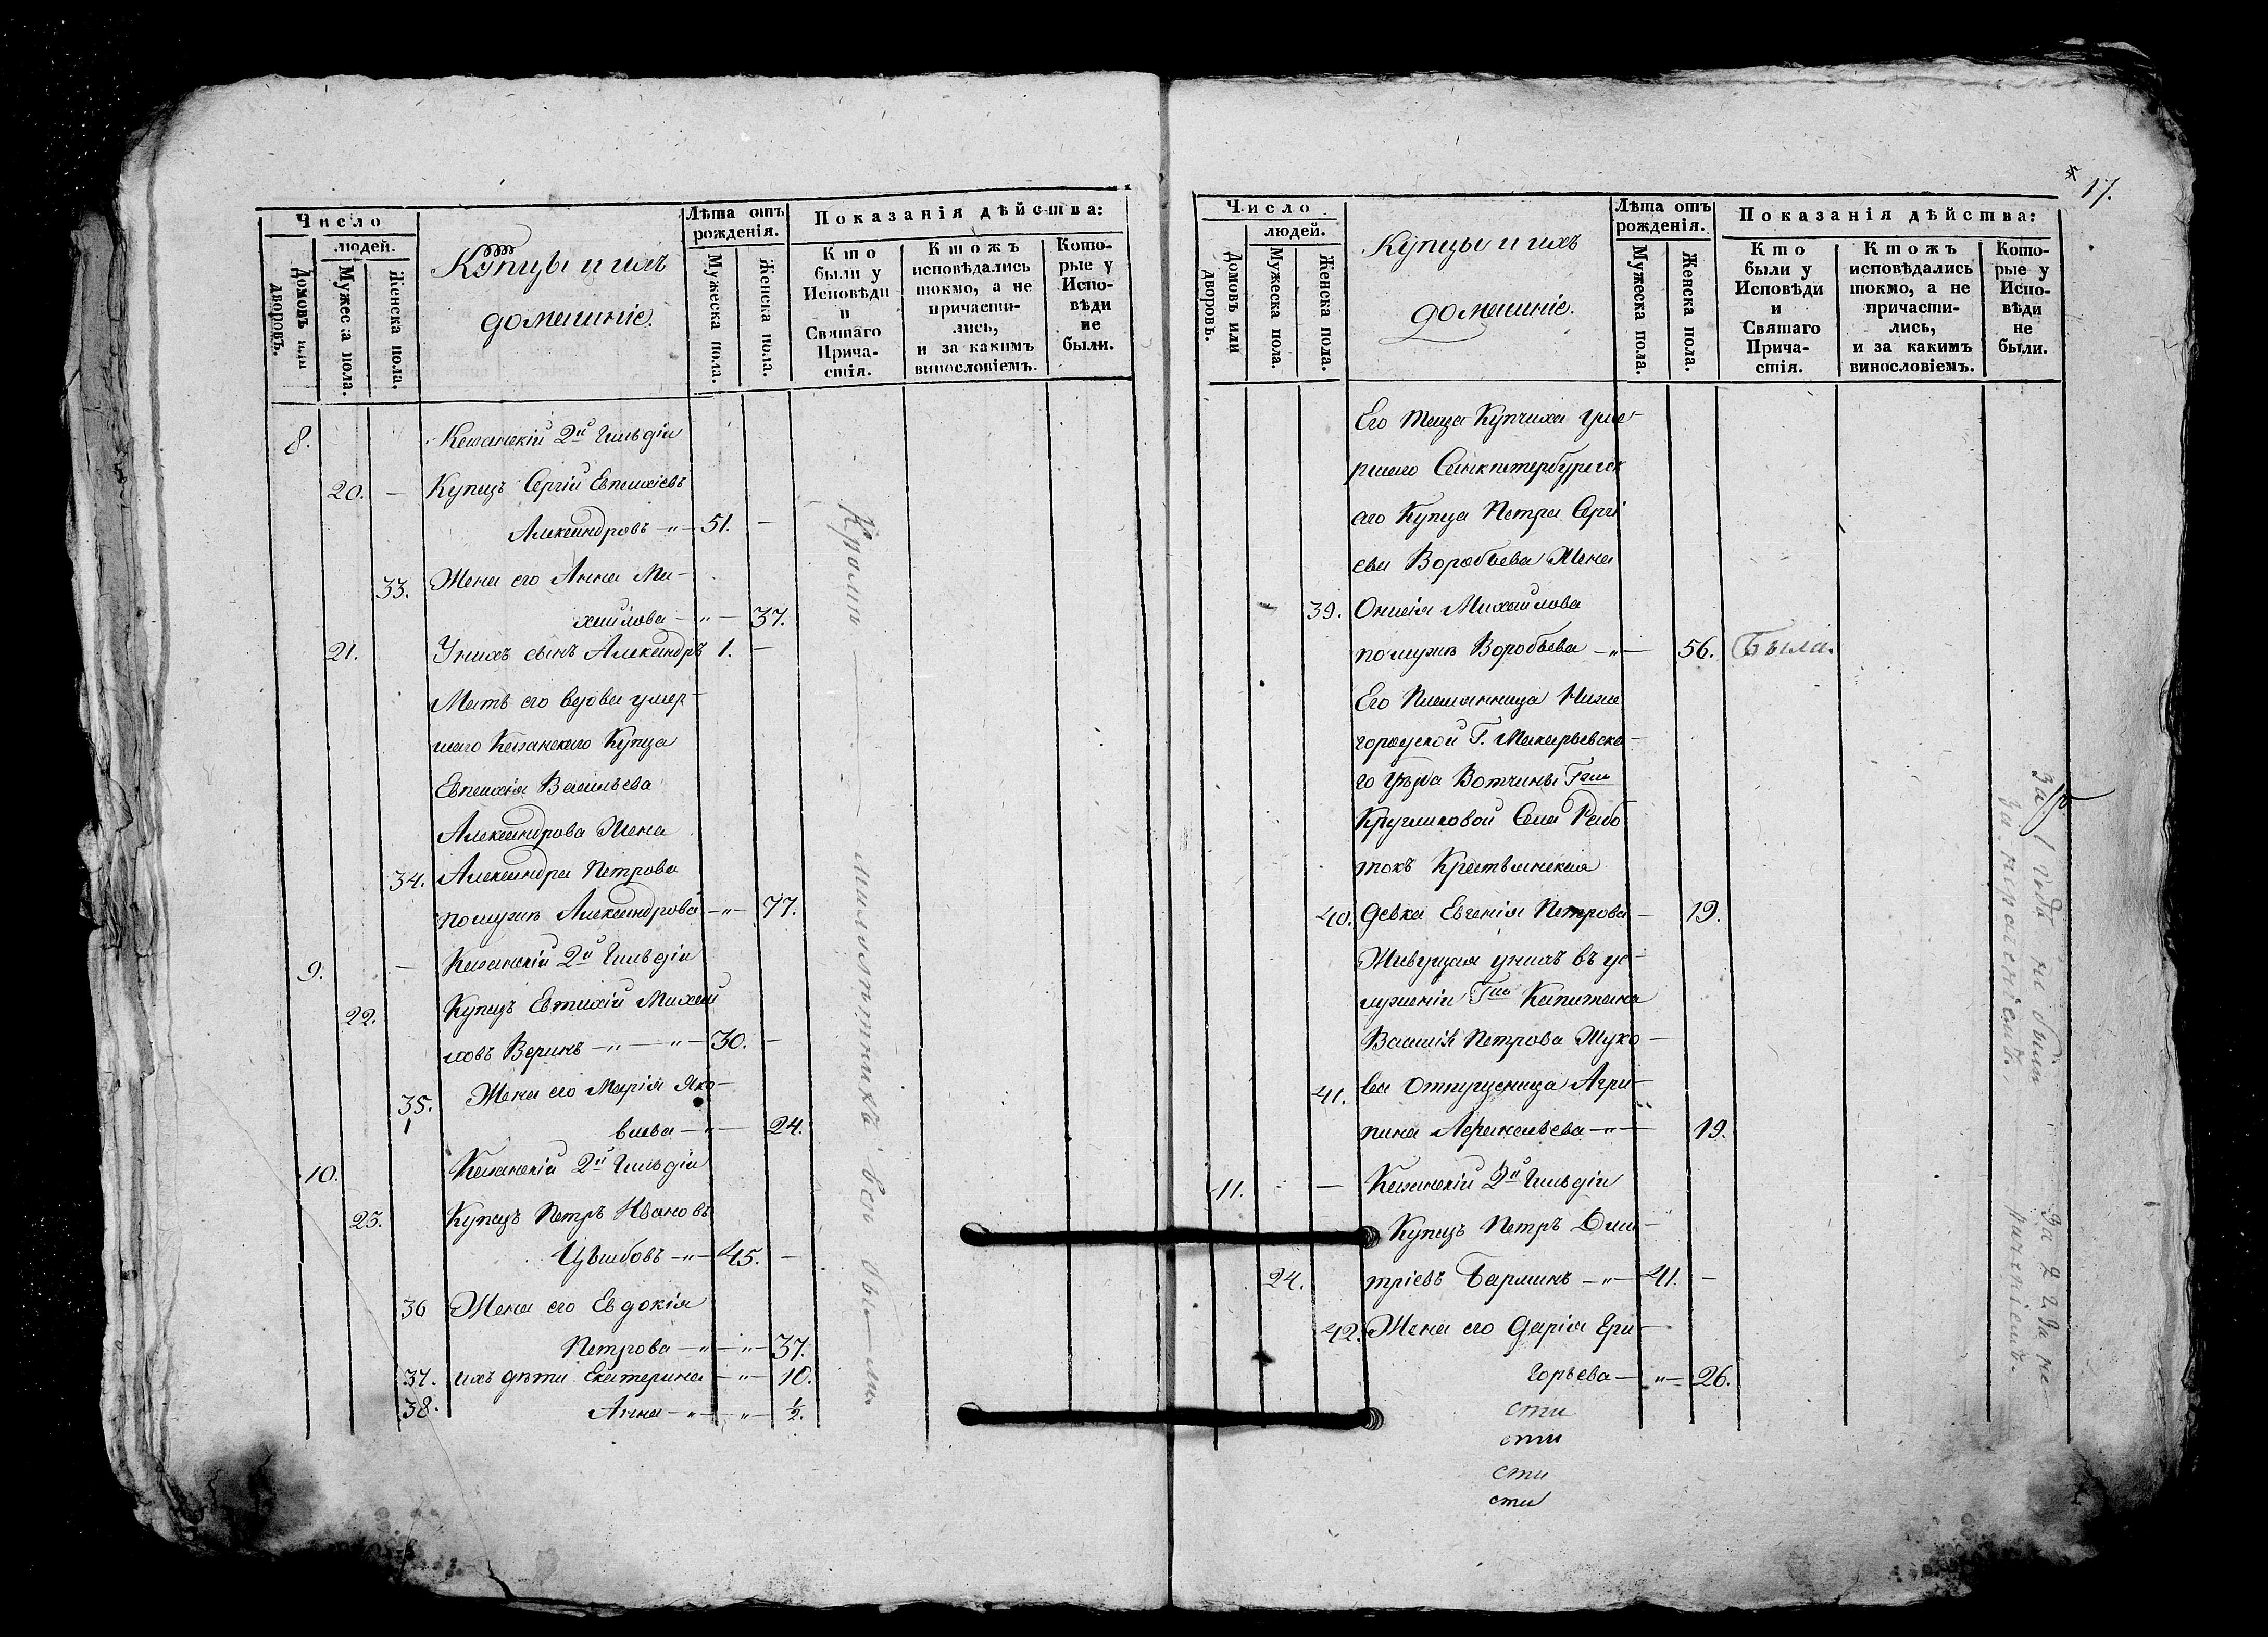 Число
людей.
Домовъ или дворовъ.
Мужеска пола.
Женска пола.
Купцы и ихъ
домашніе.
Лѣта отъ
рожденія.
Мужеска пола.
Женска пола.
Показанія дѣйства:
Кто
были у
Исповѣди
и
Святаго
Прича-
стія.
Ктожъ
исповѣдались
токмо, а не
причасти-
лись,
и за какимъ
винословіемъ.
Кото-
рые у
Испо-
вѣди
не
были.
8. Казанскій 2й Гильдіи
20. — Купецъ Сергій Евтихіевъ
Александровъ —"— 51. —
33. Жена его Анна Ми-
хайлова —"— 37.
21. У нихъ сынъ Александръ 1. —
Мать его вдова умер-
шаго Казанскаго Купца
Евтихія Васильева
Александрова Жена
34. Александра Петрова
по мужѣ Александрова —"— 77.
9. — Казанскій 2й Гильдіи
22. Купецъ Евтихій Михай
ловъ Веринъ —"— —"— 30. —
35. Жена его Марія Яко-
влева —"— 24.
10. Казанскій 2й Гильдіи
23. Купецъ Петръ Ивановъ
—"— 45. —
36 Жена его Евдокія
Петрова —"— —"— 37.
37. ихъ дѣти Екатерина —"— 10.
38. Анна —"— —"— ½.
Кромѣ
бы
17.
Число
людей.
Домовъ или дворовъ.
Мужеска пола.
Женска пола.
Купцы и ихъ
домашніе.
Лѣта отъ
рожденія.
Мужеска пола.
Женска пола.
Показанія дѣйства:
Кто
были у
Исповѣди
и
Святаго
Прича-
стія.
Ктожъ
исповѣдались
токмо, а не
причасти-
лись,
и за какимъ
винословіемъ.
Кото-
рые у
Испо-
вѣди
не
были.
Его теща Купчиха уме-
ршаго Санктпетербургск
аго Купца Петра Сергі
ева Воробьева Жена
39. Михайлова
по мужѣ Воробьева —"— 56. Была.
Его Племянница Ниже
городской Г. Макарьевска-
го Уѣзда Вотчины Гжи
Кругликовой Села Рабо
токъ Крестьянская
40. девка Евгенія Петрова — 19.
Живущая у нихъ въ ус-
луженіи Гна Капитана
Василія Петрова Жуко-
41. ва отпущеница Агри-
пина Афанасьева —"— 19.
11. — Казанскій 2й Гильдіи
Купецъ Петръ Дми-
24. тріевъ Барминъ —"— 41. —
42. Жена его Дарія Гри-
горьева —"— 26.
сти
сти
сти
сти
года не были
за нераченіемъ.
За 2 не